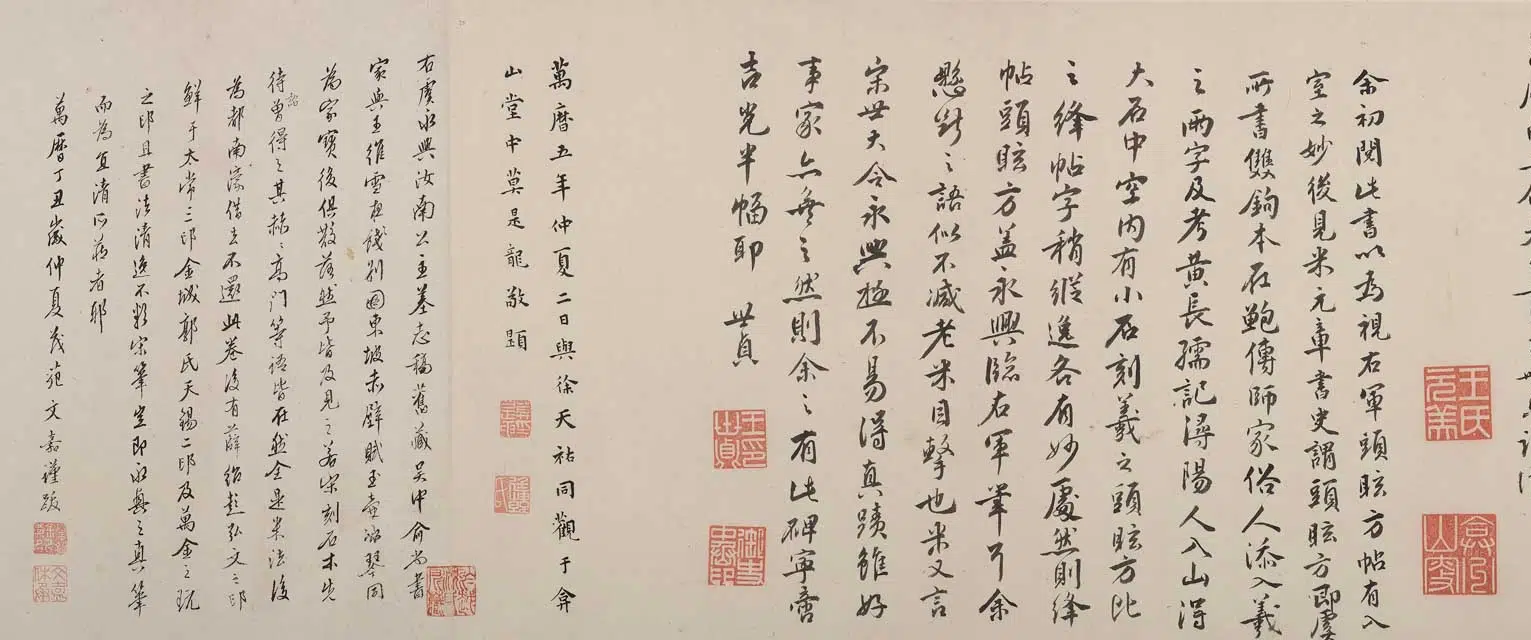 余初閱此書以為視右軍頭眩方帖有入
室之妙後見米元章書史謂頭眩方即虞
所書雙鉤本在鮑傳師家俗人添入羲
之兩字及考黃長孺記潯陽人入山得
大石中空內有小石刻羲之頭眩方比
之絳帖字稍縱逸各有妙處然則絳
帖頭眩方蓋永興臨右軍筆耳余
懸斷之語似不減老米目擊也米又言
宋世大令永興極不易得真蹟雖好
事家亦無之然則余之有此碑寧啻
吉光半幅耶 世貞
王氏元美
王印世貞
萬曆五年仲夏二日與徐天祐同觀于弇
山堂中莫是龍敬題
右虞永興汝南公主墓志稿舊藏吳中俞尚書
家與王維雪夜餞別圖東坡赤壁賦玉壺冰琴同
為家寶後俱散落然予皆及見之若宋刻石本先
待詔曾得之其赫〻高門等語皆在然全是米法後
為都南濠借去不還此卷後有薛紹彭弘文之印
鮮于太常三印金城郭氏天錫二印及萬金之玩
之印且書法清逸不類宋筆豈即永興之真筆
而為宜清所藏者耶
萬曆丁丑歲仲夏茂苑文嘉謹跋